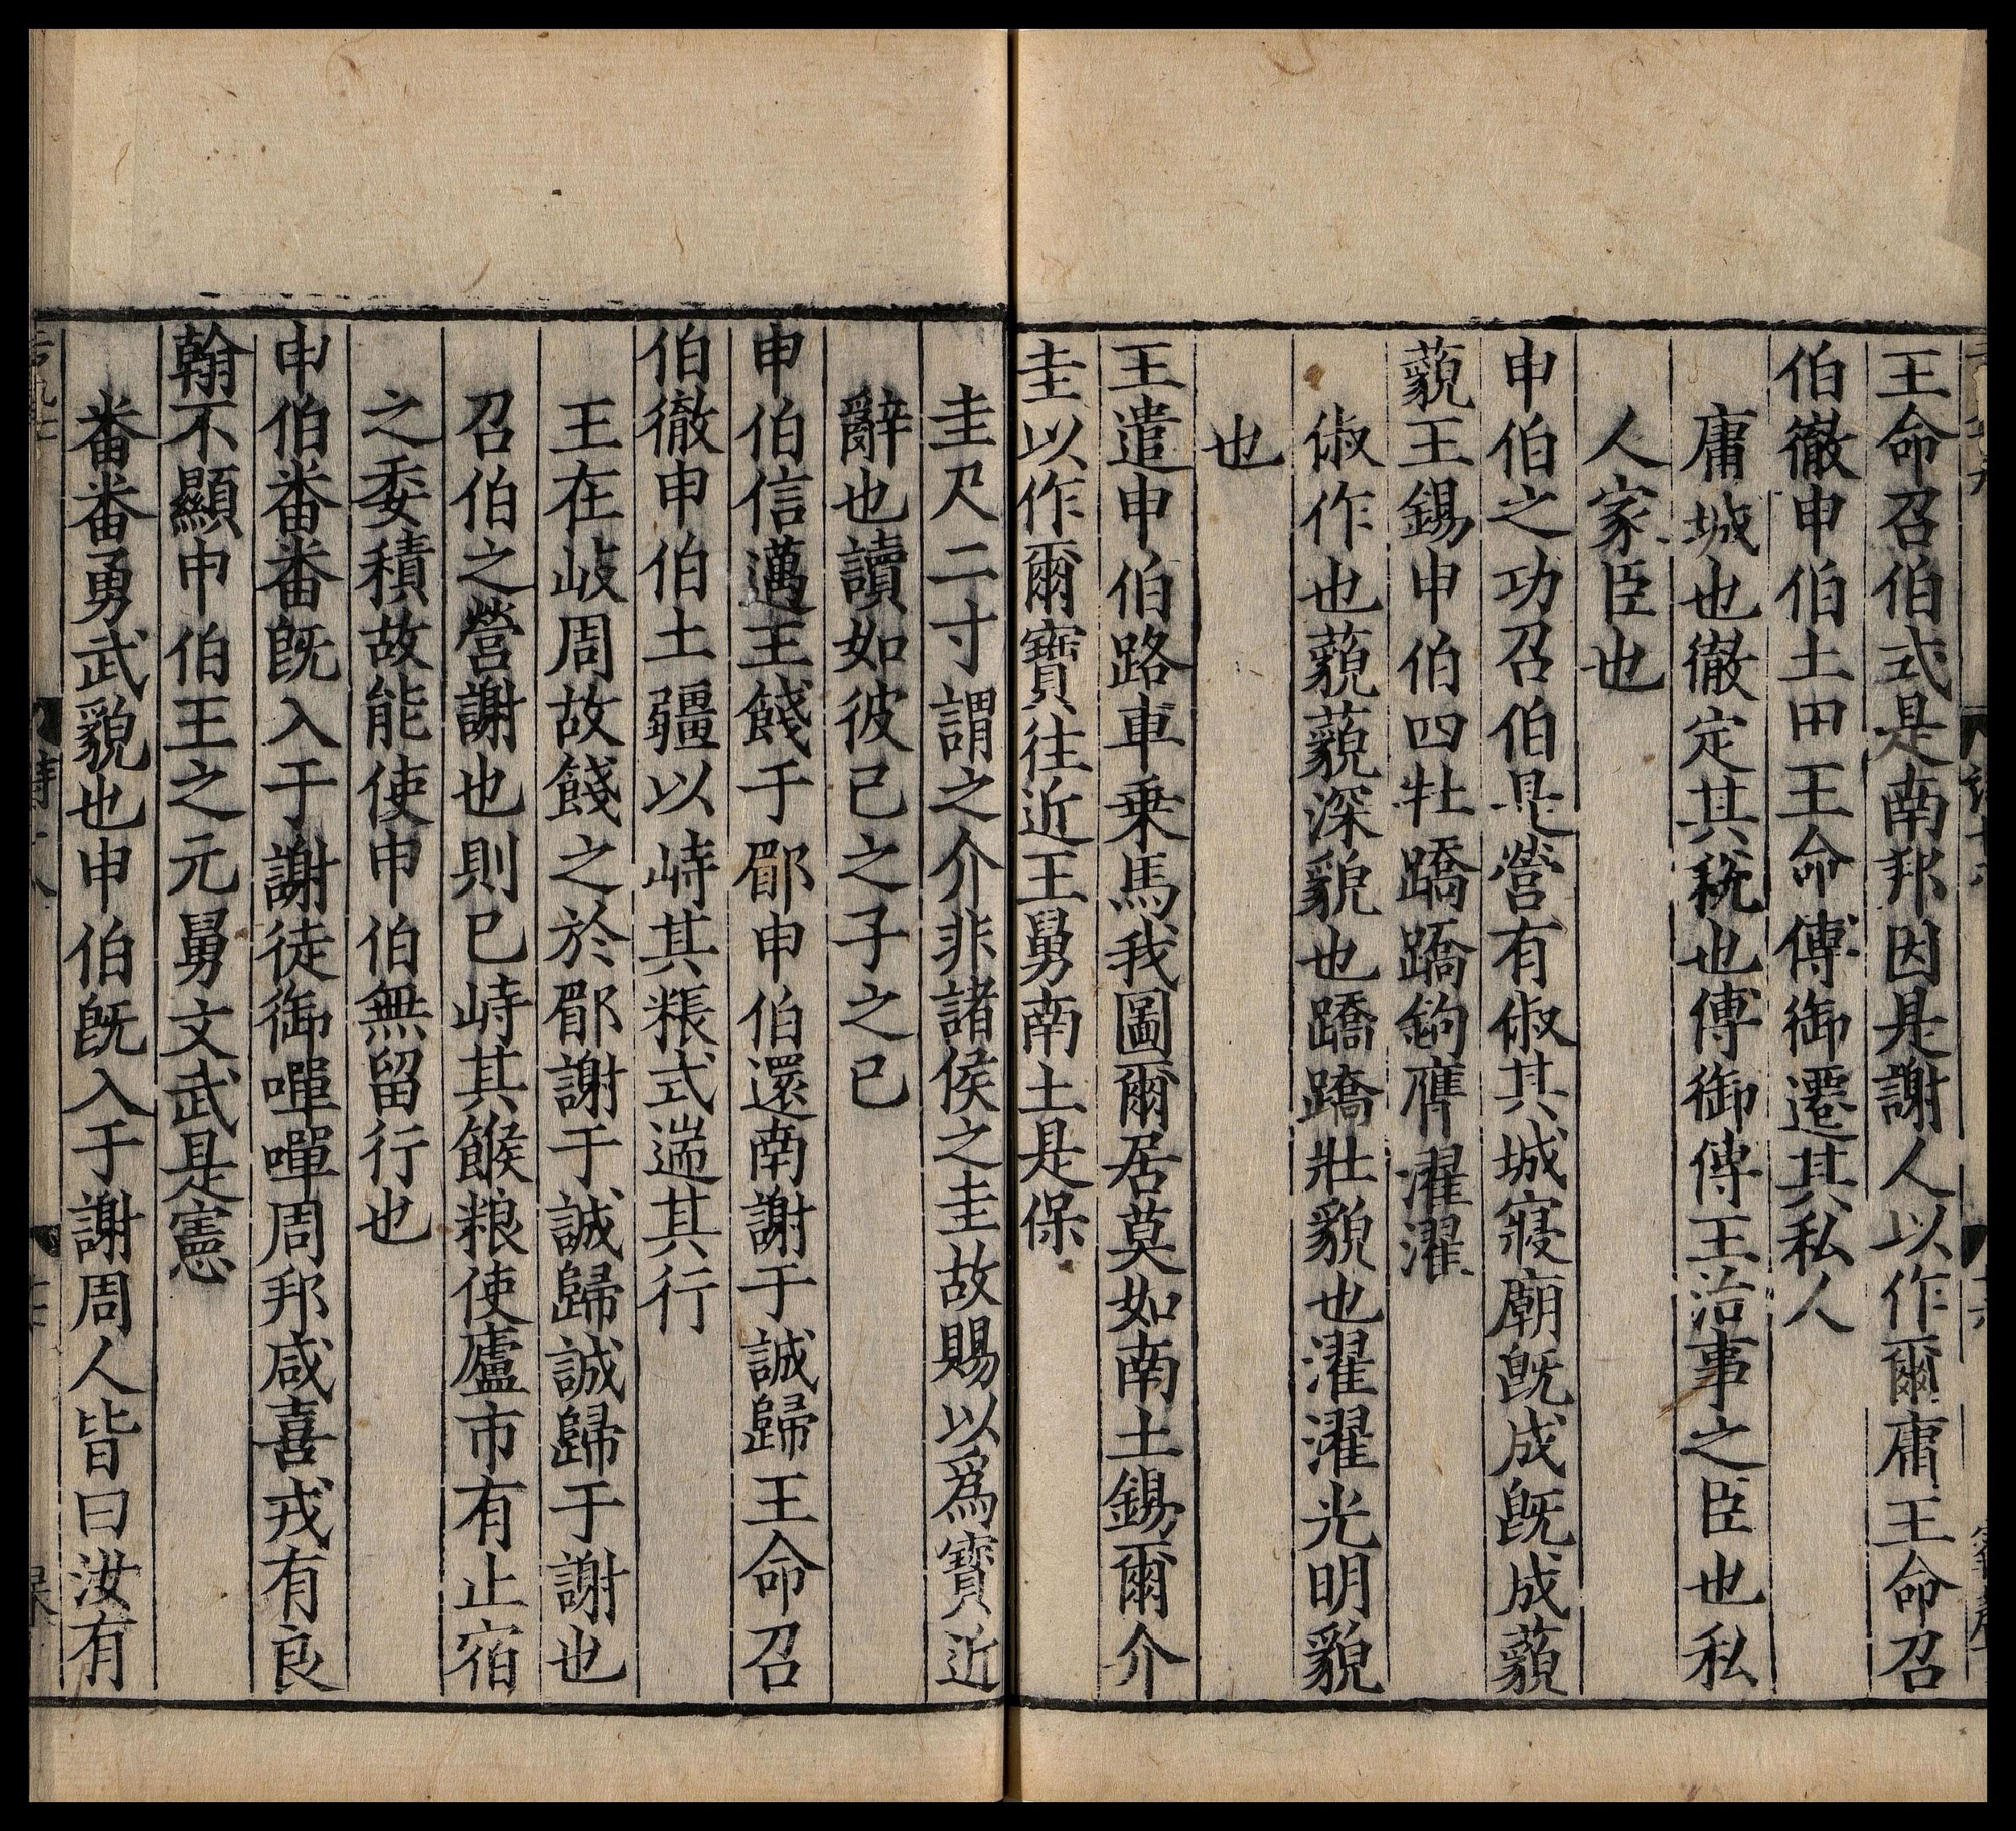 王命召伯式是南邦因是謝人以作爾庸王命召
伯徹申伯土田王命傅御遷其私人
庸城也徹定其稅也傅御傅王治事之臣也私
人家臣也
申伯之功召伯是營有俶其城寢廟旣成旣成藐
藐王錫申伯四牡蹻蹻鉤膺濯濯
俶作也藐藐深貌也蹻蹻壯貌也濯濯光明貌
也
王遣申伯路車乗馬我圖爾居莫如南土錫爾介
圭以作爾寶往近王舅南土是保
圭尺二寸謂之介非諸侯之圭故賜以爲寶近
辭也讀如彼己之子之已
申伯信邁王餞于郿申伯還南謝于誠歸王命召
伯徹申伯土疆以峙其粻式遄其行
王在岐周故餞之於郿謝于誠歸誠歸于謝也
召伯之營謝也則已峙其餱粮使廬市有止宿
之委積故能使申伯無留行也
申伯番番旣入于謝徒御嘽嘽周邦咸喜戎有良
翰不顯申伯王之元舅文武是憲
番番勇武貌也申伯旣入于謝周人皆曰汝有